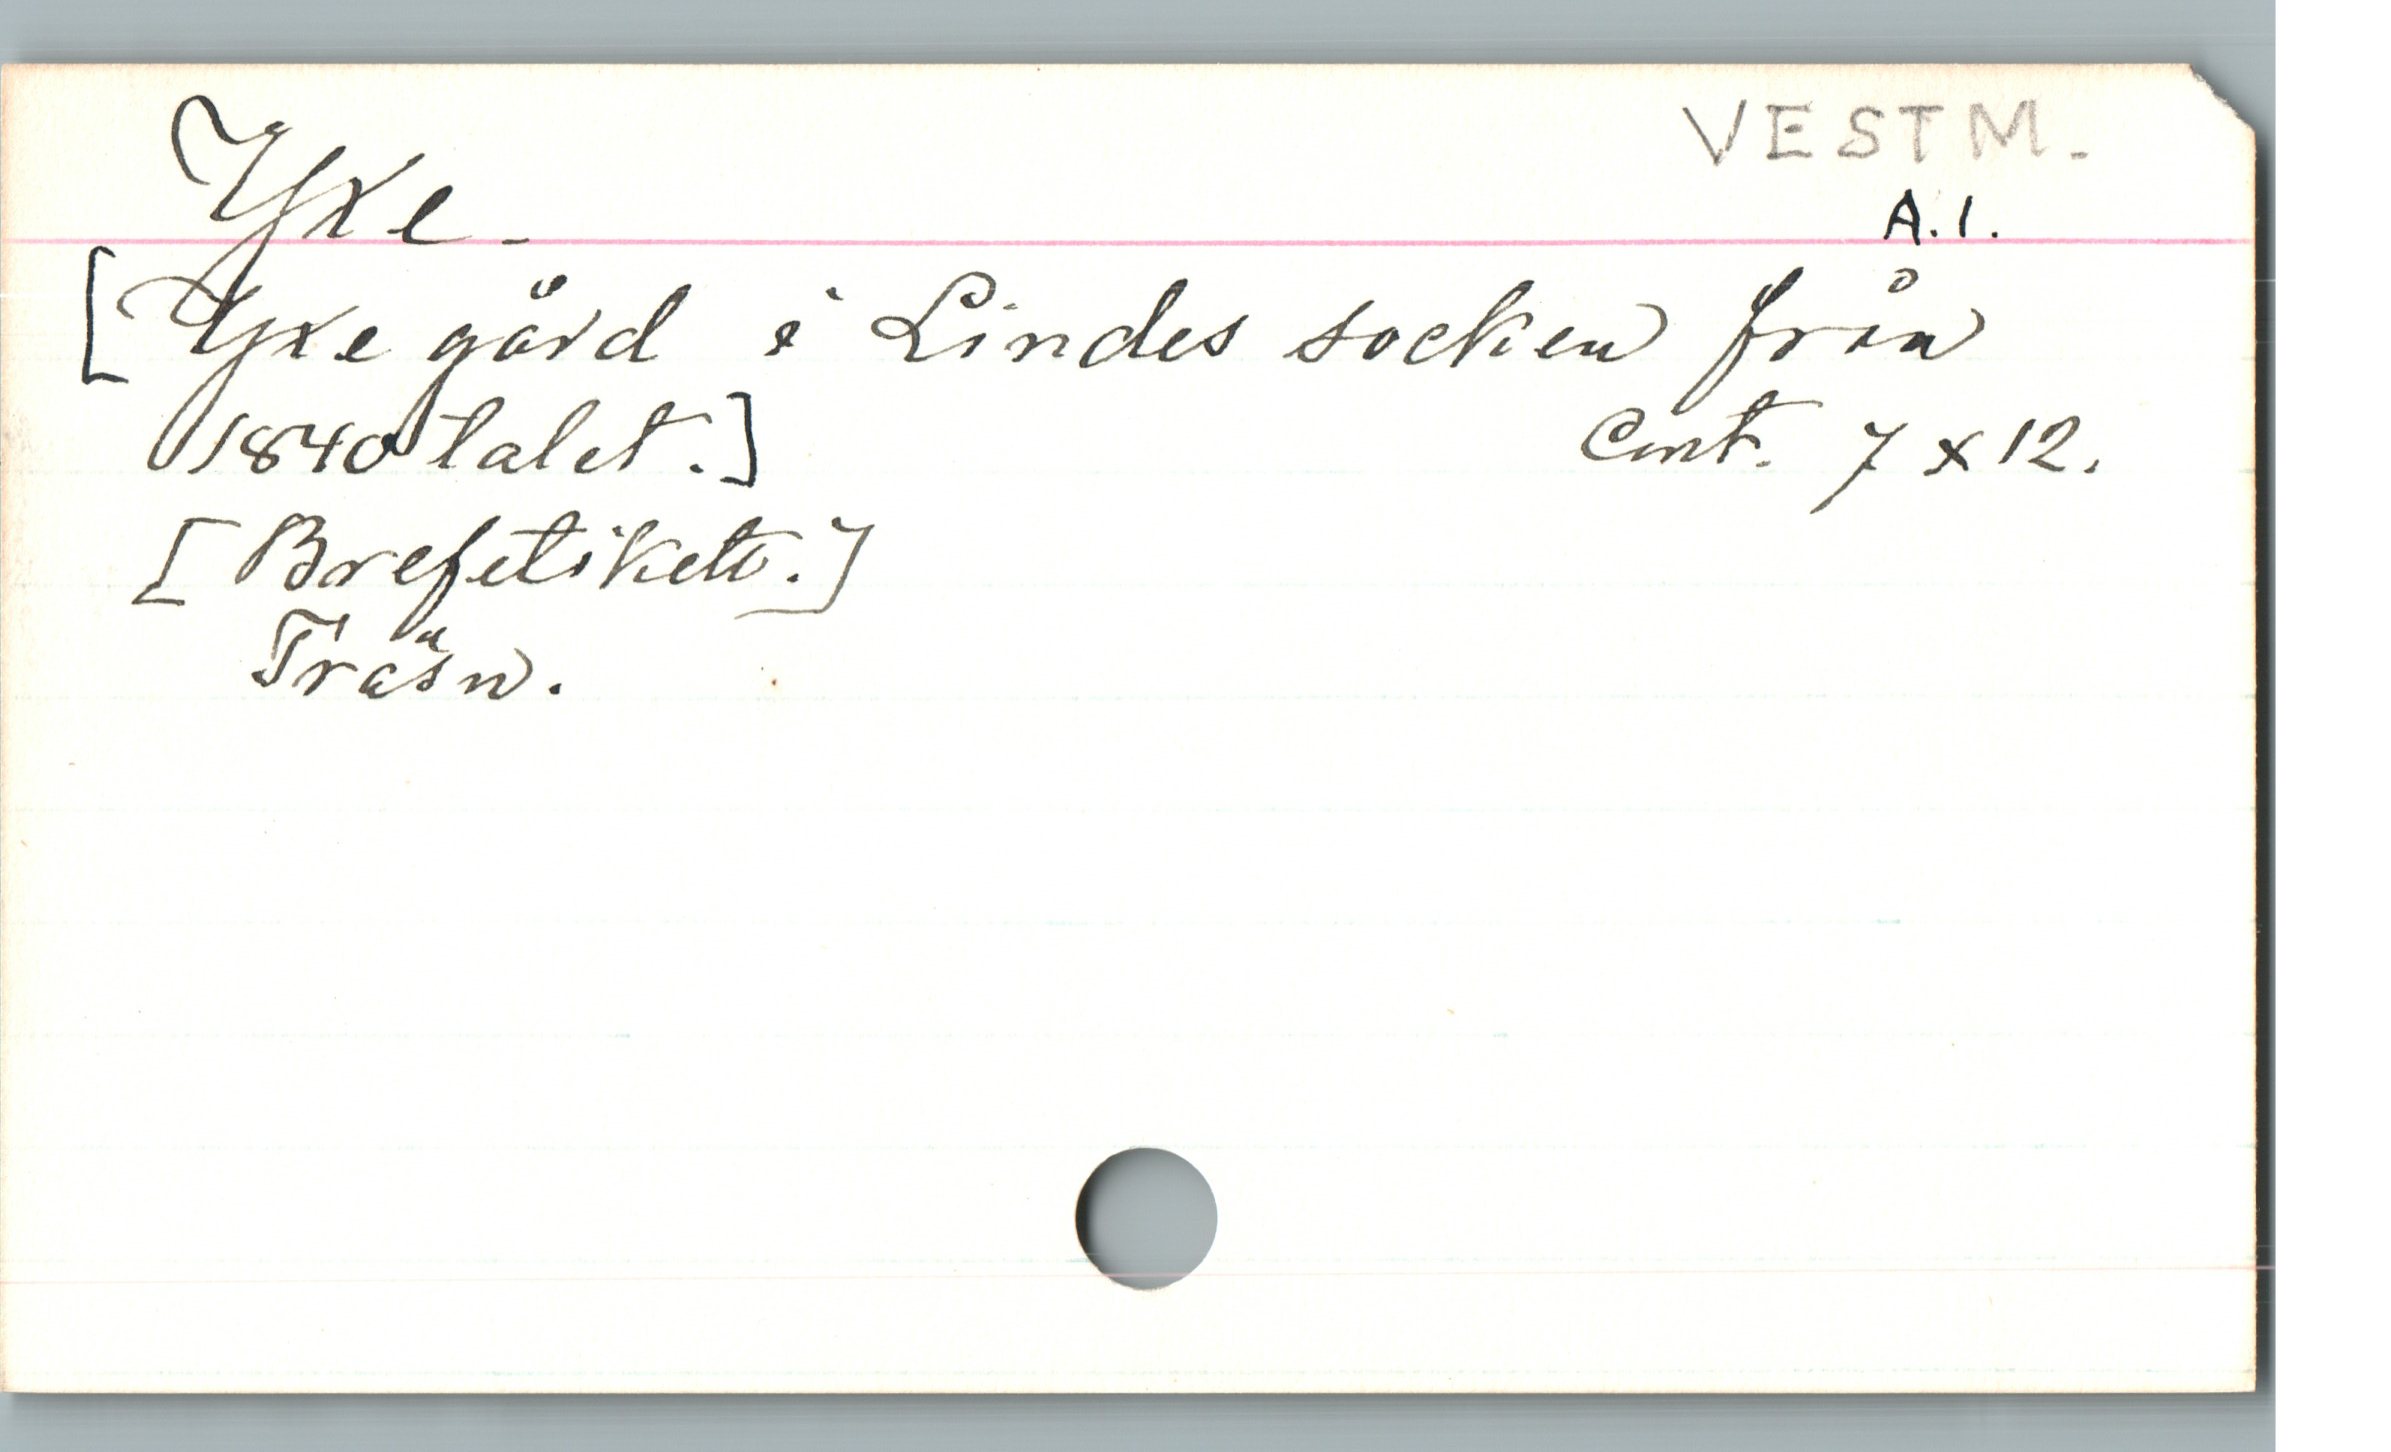 Yxe.
VESTM.
A.1.
[Yxe gård i Lindes socken från
1840 talet.] Cmt. 7 x 12.
[Brefetikett.]
Träsn.